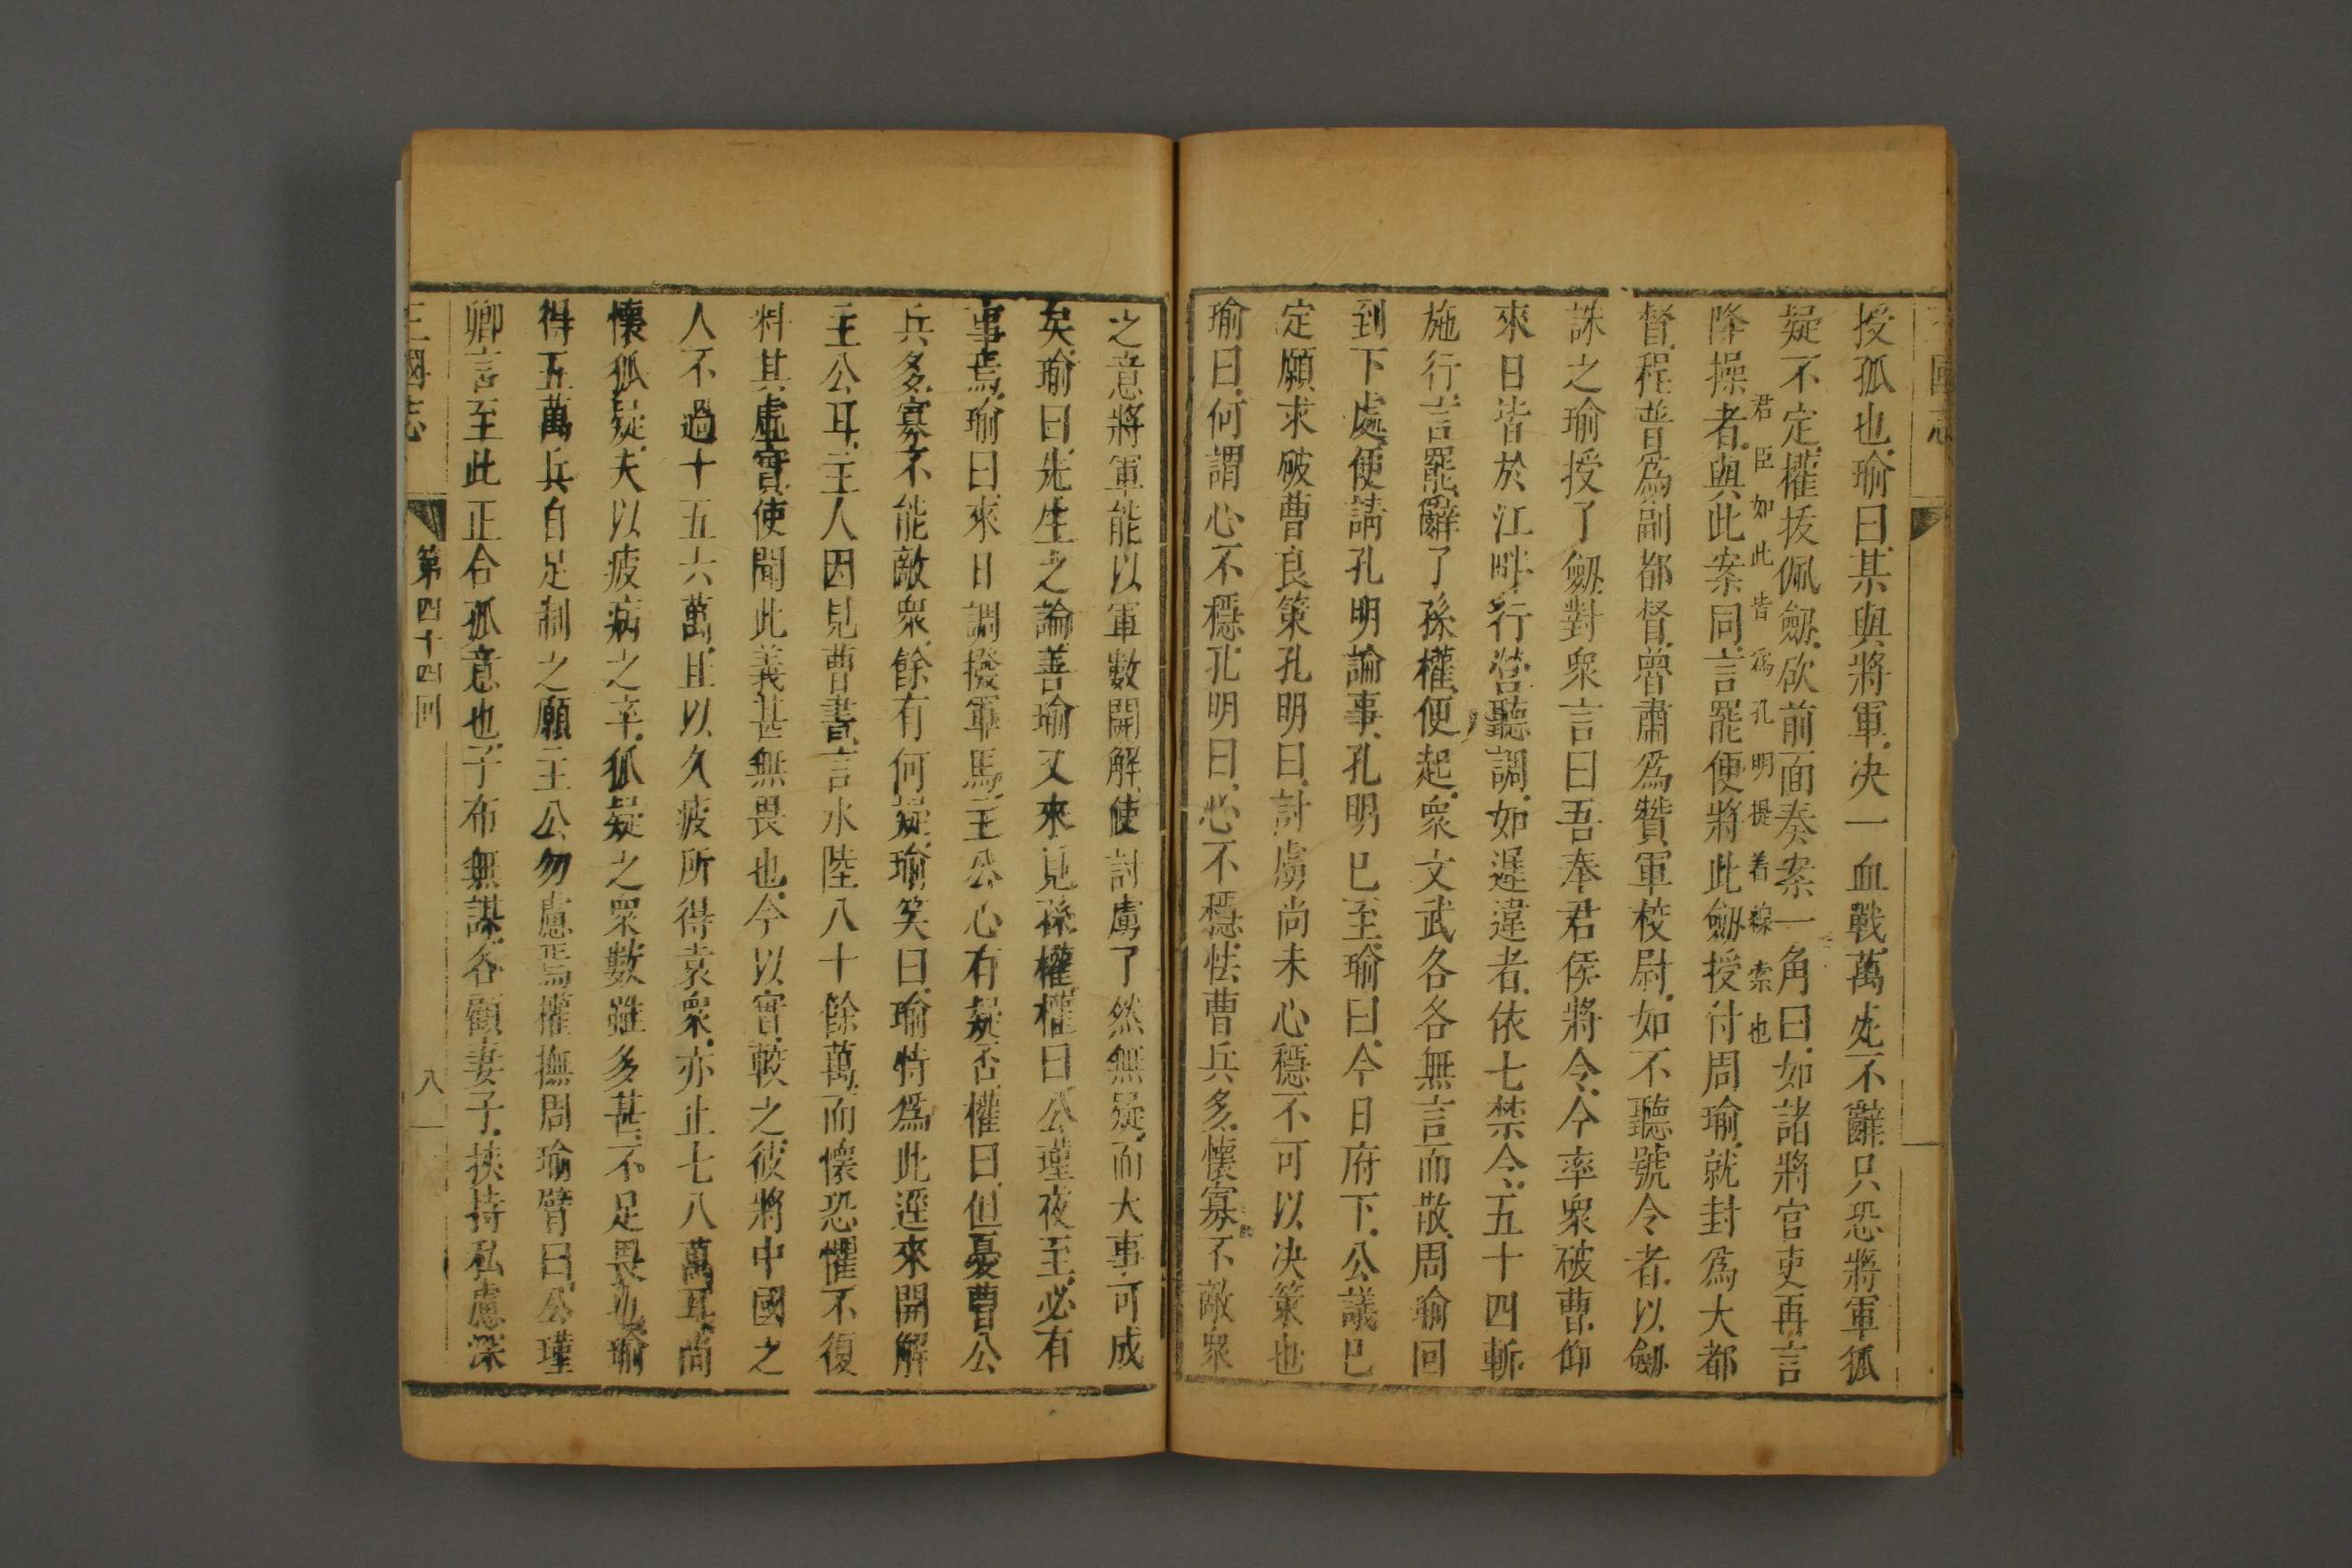 國志
授孤也瑜曰某與將軍决一血戰萬死不辭只恐將軍狐
疑不定權拔佩劔砍前面奏案一角曰如諸將官吏再言
君臣如此皆爲孔明提着線索也
降操者與此案同言罷便將此劔授付周瑜就封爲大都
督程普爲副都督魯肅爲贊軍校尉如不聽號令者以劔
誅之瑜授了劔對衆言曰吾奉君侯將令今率衆破曹仰
來日皆於江畔行營聽調如遲違者依七禁令五十四斬
施行言罷辭了孫權便起衆文武各各無言而散周瑜回
到下處便請孔明論事孔明已至瑜曰今日府下公議已
定願求破曹良策孔明曰討虜尚未心穩不可以决策也
瑜曰何謂心不穩孔明曰心不穩怯曹兵多懷寡不敵衆
之意將軍能以軍數開解使討虜了然無疑而大事可成
矣瑜曰先生之論善瑜又來見孫權權曰公瑾夜至必有
事焉瑜曰來日調撥軍馬主公心有疑否權曰但憂曹公
兵多寡不能敵衆餘有何疑瑜笑曰瑜特爲此逕來開解
主公耳主人因見曹書言水陸八十餘萬而懷恐懼不復
料其虛實使聞此義甚無畏也今以實較之彼將中國之
人不過十五六萬且以久疲所得袁衆亦止七八萬耳尚
懷狐疑夫以疲病之卒狐疑之衆數雖多甚不足畏也瑜
得五萬兵自足制之願主公勿慮焉權撫周瑜臂曰公瑾
卿言至此正合孤意也子布無謀各顧妻子挾持私慮深
三國志 第四十四回 八